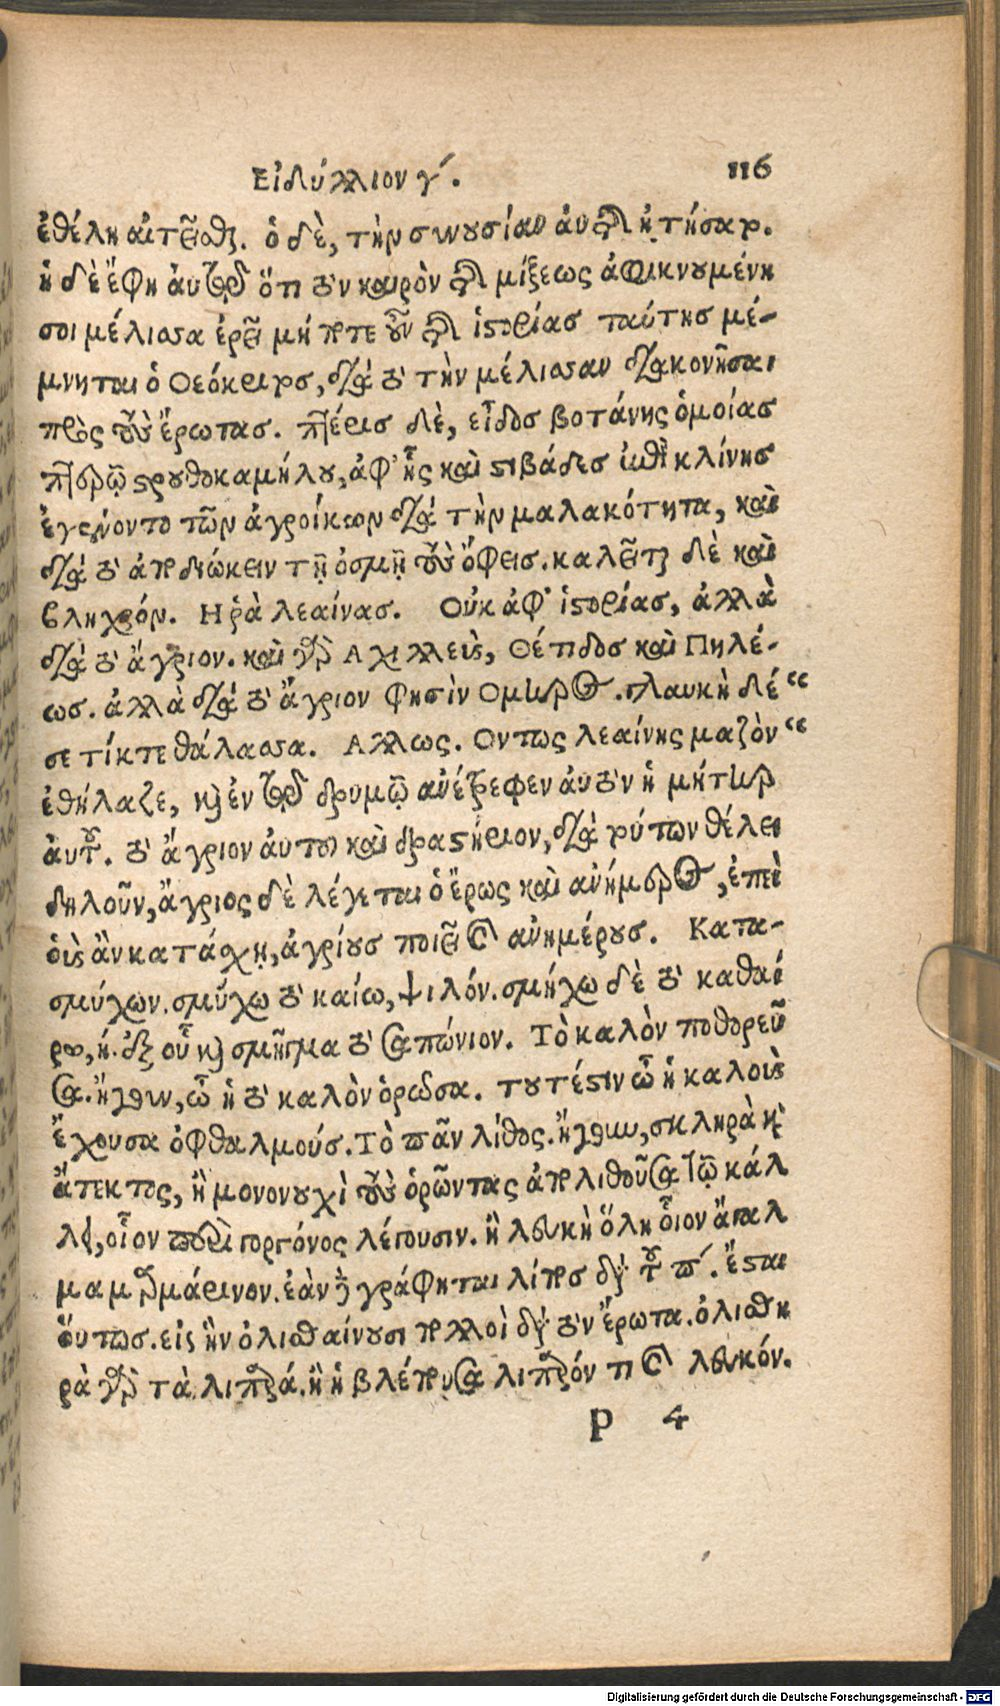 Εἰδύλλιον γ´. 116
ἐθέλῃ αἰτεῖσθαι. ὁ δὲ, τὴν συνουσίαν αὐτῆς ᾐτήσατο.
ἡ δὲ ἔφη αὐτῷ ὅτι τὸν καιρὸν τῆς μίξεως ἀφικνουμένη
σοι μέλισσα ἐρεῖ μήποτε οὖν τῆς ἱστορίας ταύτης μέ-
μνηται ὁ Θεόκριτος, διὰ τὸ τὴν μέλισσαν διακονῆσαι
πρὸς τοὺς ἔρωτας. πτέρις δὲ, εἶδος βοτάνης ὁμοίας
πτερῷ στρουθοκαμήλου, ἀφ' ἧς καὶ στιβάδες ἐπὶ κλίνης
ἐγένοντο τῶν ἀγροίκων διὰ τὴν μαλακότητα, καὶ
διὰ τὸ ἀποδιώκειν τῇ ὀσμῇ τοὺς ὄφεις. καλεῖται δὲ καὶ
βληχρόν. Η ῥὰ λεαίνας. Οὐκ ἀφ' ἱστορίας, ἀλλὰ
διὰ τὸ ἄγριον. καὶ γὰρ Αχιλλεὺς, Θέτιδος καὶ Πηλέ-
ως. ἀλλὰ διὰ τὸ ἄγριον φησὶν Ομηρος. γλαυκὴ δέ “
σε τίκτε θάλασσα. Αλλως. Οντως λεαίνης μαζὸν “
ἐθήλαζε, καὶ ἐν τῷ δρυμῷ ἀνέτρεφεν αὐτὸν ἡ μήτηρ
αὐτοῦ. τὸ ἄγριον αὐτοῦ καὶ δραστήριον, διὰ τούτων θέλει
δηλοῦν, ἄγριος δὲ λέγεται ὁ ἔρως καὶ ἀνήμερος, ἐπεὶ
οὓς ἂν κατάσχῃ, ἀγρίους ποιεῖ καὶ ἀνημέρους. Κατα-
σμύχων. σμύχω τὸ καίω, ψιλόν. σμήχω δὲ τὸ καθαί
ρω, ή. ἐξ οὗ καὶ σμῆγμα τὸ σαπώνιον. Τὸ καλὸν ποθορεῦ
σα. ἤγουν, ὦ ἡ τὸ καλὸν ὁρῶσα. τουτέστιν ὦ ἡ καλοὺς
ἔχουσα ὀφθαλμούς. Τὸ πᾶν λίθος. ἤγουν, σκληρὰ καὶ
ἄτεκτος, ἢ μονονουχὶ τοὺς ὁρῶντας ἀπολιθοῦσα τῷ κάλ
λει, οἷον περὶ γοργόνος λέγουσιν. ἢ λευκὴ ὅλη οἷον ἄγαλ
μα μαρμάρινον. ἐὰν δὲ γράφηται λίπος διὰ τοῦ π´. ἔσται
οὕτως. εἰς ἣν ὀλισθαίνουσι πολλοὶ διὰ τὸν ἔρωτα. ὀλισθη
ρὰ γὰρ τὰ λιπαρά. ἢ ἡ βλέπουσα λιπαρόν τι καὶ λευκόν.
P 4
Digitalisierung gefördert durch die Deutsche Forschungsgemeinschaft - DFG